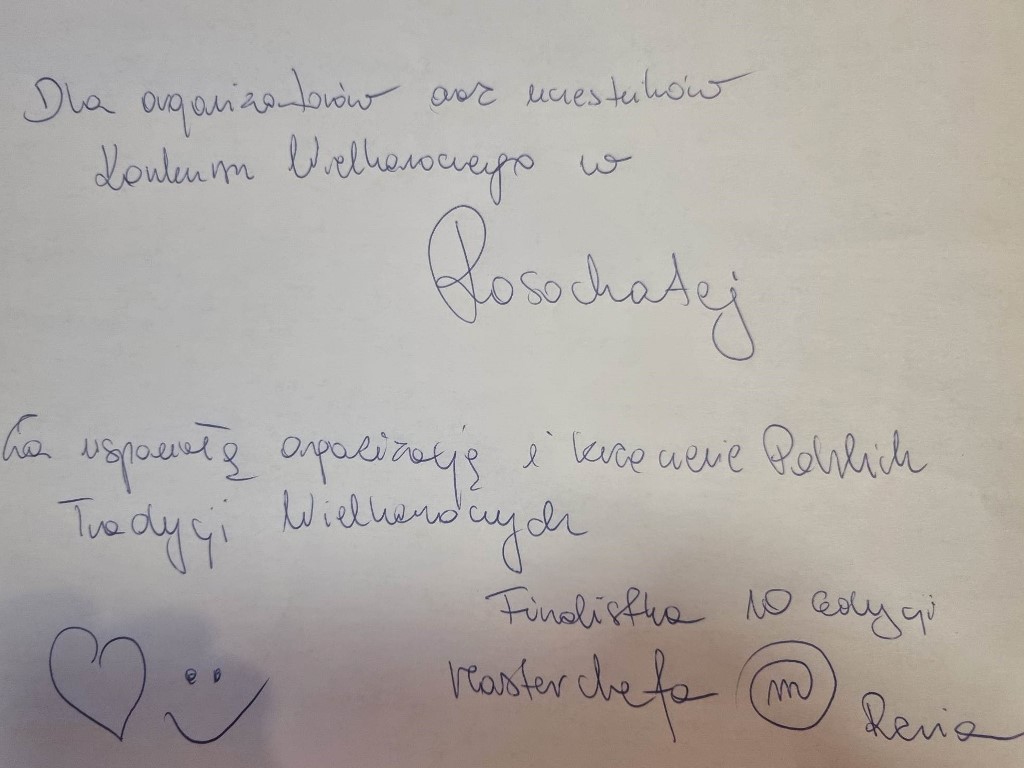 Dla organizatorów oraz uczestników
Konkursu Wielkanocnego w
Rosochatej
Za wspaniałą organizację i krzewienie Polskich
Tradycji Wielkanocnych
Finalistka 10 edycji
Masterchefa m
Renia